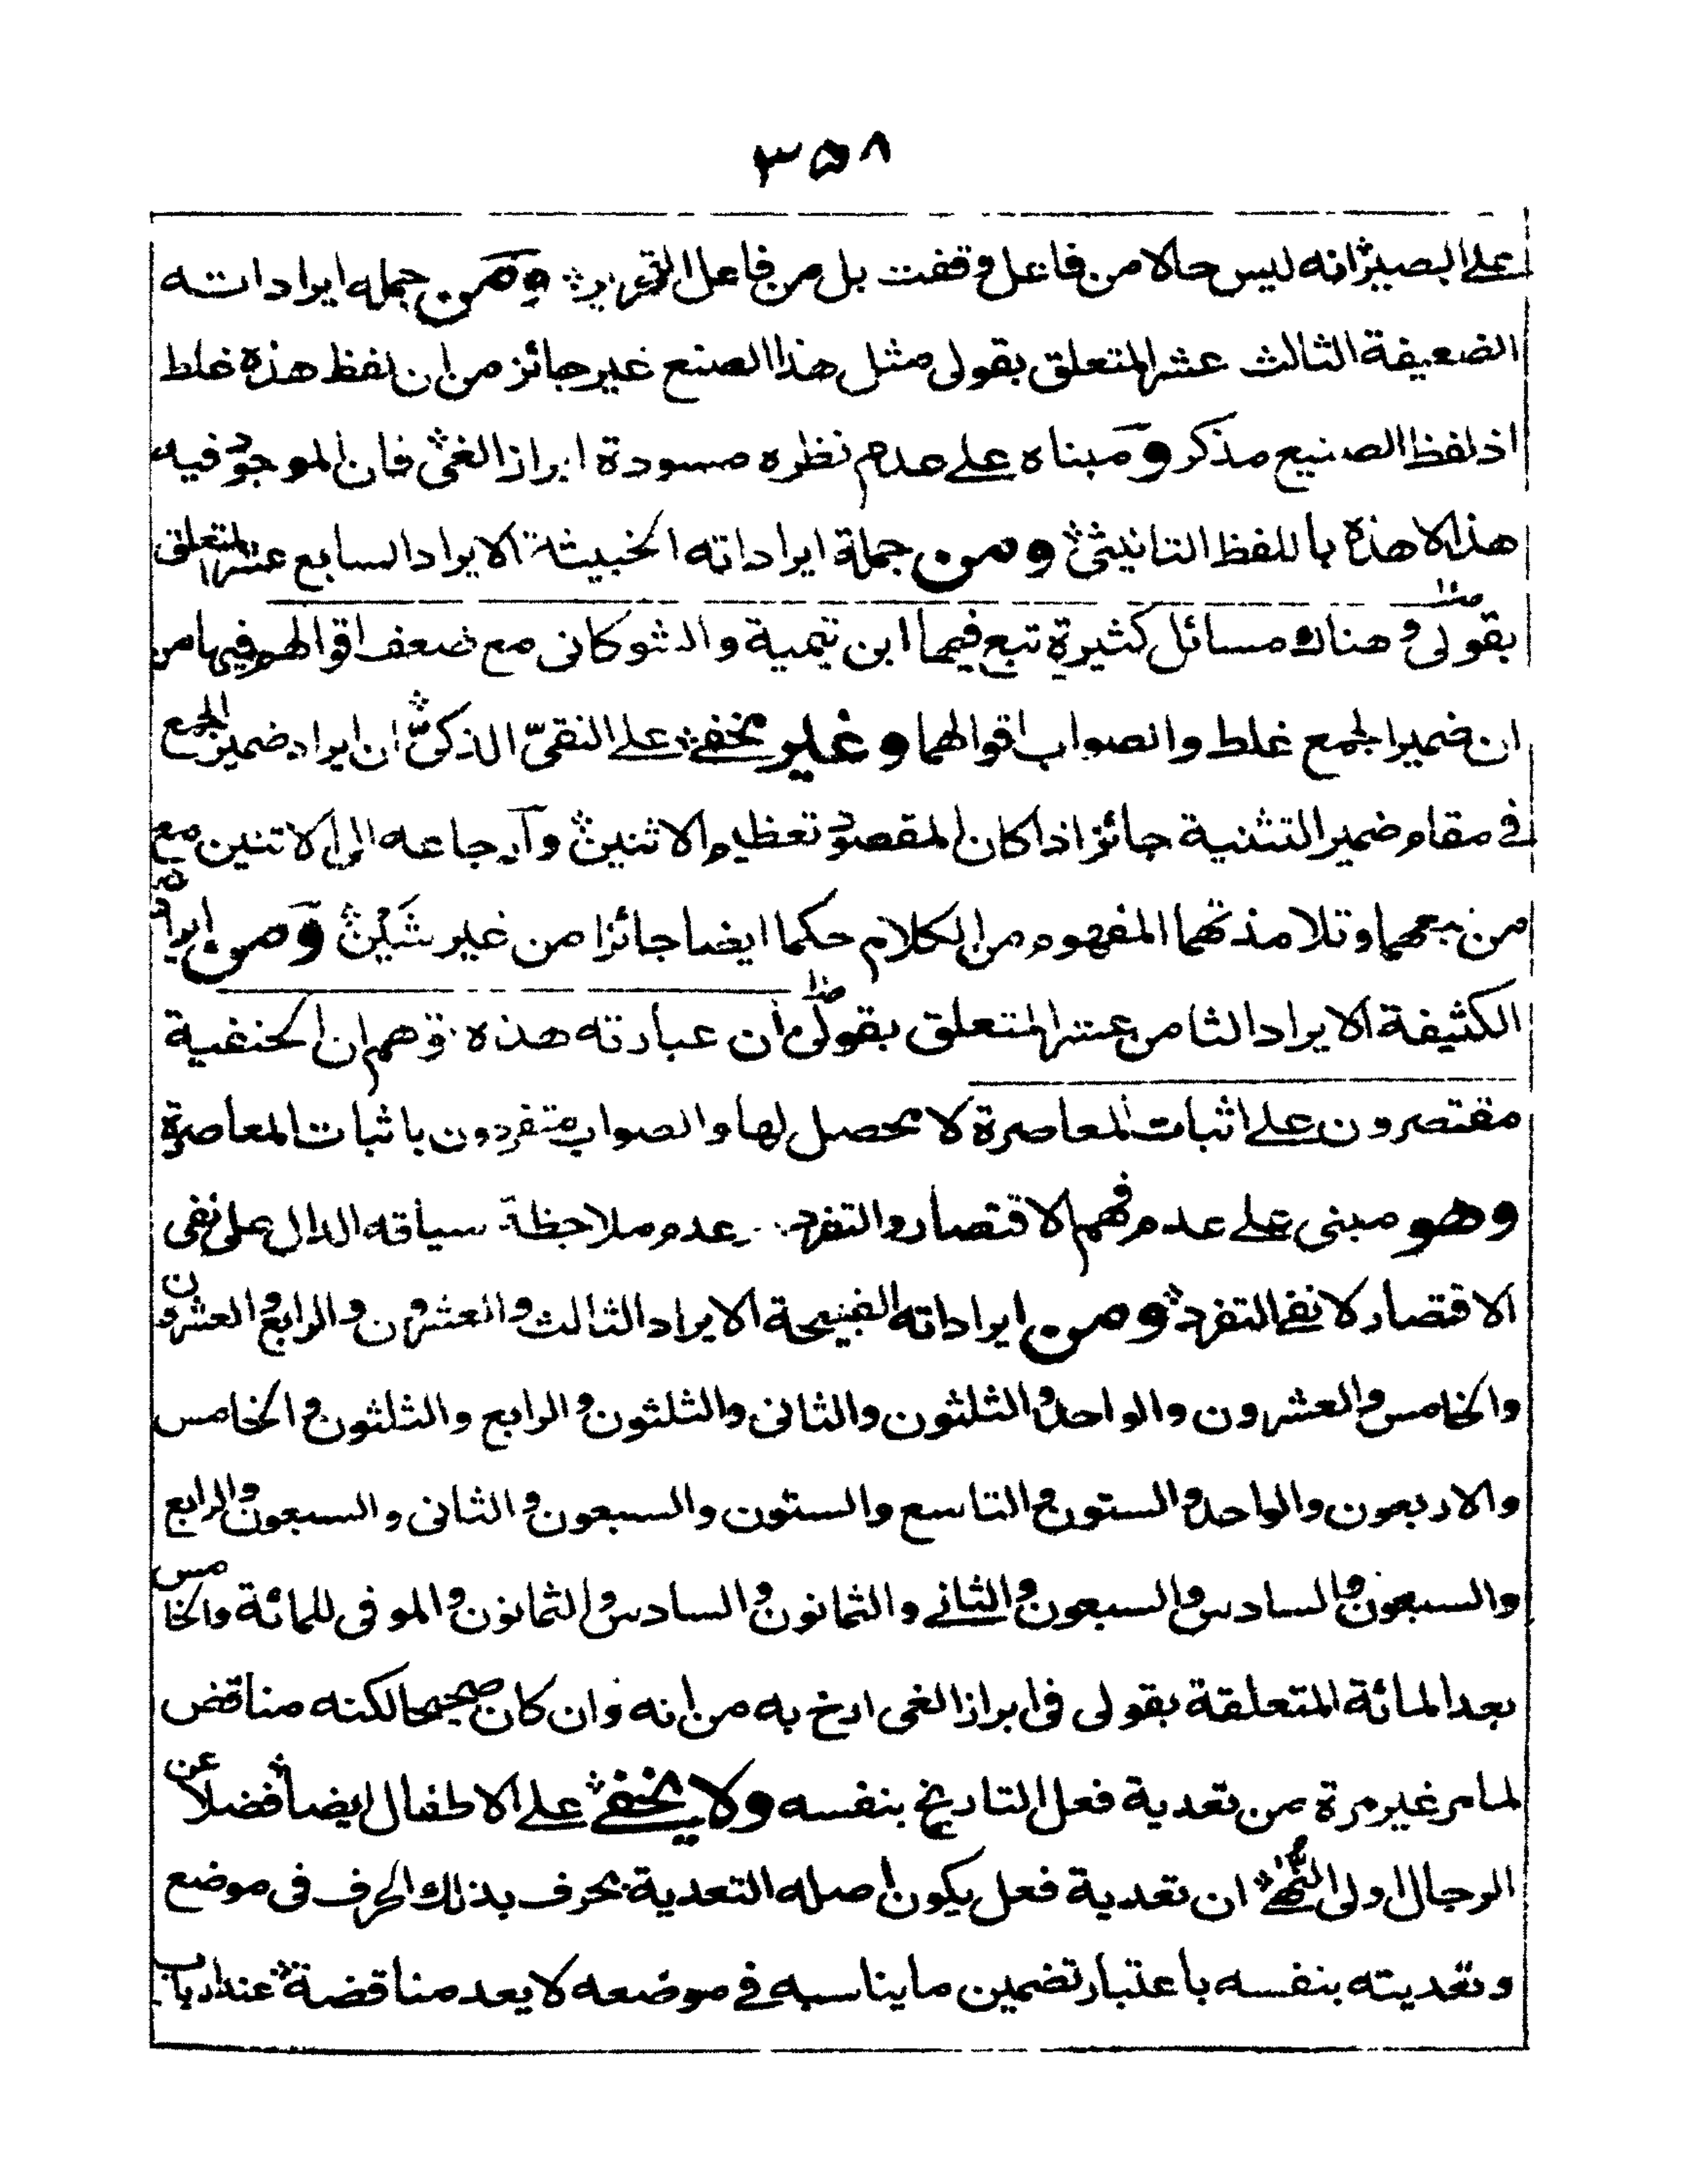 ٣٥٨
على البصير انه ليس حالا من فاعل وقفت بل من فاعل التحرير ومن جمله ايراداته
الضعيفة الثالث عشر المتعلق بقولى مثل هذا الصنع غير جائز من ان لفظ هذه غلط
اذ لفظ الصنيع مذكر ومبناه على عدم نظره مسودة ابراز الغى فان الموجود فيه
هذا لا هذه باللفظ التانيثى ومن جملة ايراداته الخبيثة الايراد السابع عشر المتعلق
بقولى وهناك مسائل كثيرة تبع فيها ابن تيمية والشوكانى مع ضعف اقوالهم فيها من
ان ضمير الجمع غلط والصواب اقوالهما وغير مخفى على النقىّ الذكىّ ان ايراد ضمير الجمع
فى مقام ضمير التثنية جائز اذا كان المقصود تعظيم الاثنين وآرجاعه الى الاثنين مع
من تبعهما وتلامذتهما المفهوم من الكلام حكما ايضا جائزا من غير شَيْن ومن ايراداته
الكثيفة الايراد الثامن عشر المتعلق بقولى ان عبارته هذه توهم ان الحنفية
مقتصرون على اثبات المعاصرة لا محصل لها والصواب متفردون باثبات المعاصرة
وهو مبنى على عدم فهم الاقتصار والتفرد وعدم ملاحظة سياقه الدال على نفى
الاقتصار لا نفى التفرد ومن ايراداته القبيحة الايراد الثالث والعشرون والرابع والعشرون
والخامس والعشرون والواحد والثلثون والثانى والثلثون والرابع والثلثون والخامس
والاربعون والواحد والستون والتاسع والستون والسبعون والثانى والسبعون والرابع
والسبعون والسادس والسبعون والثانى والثمانون والسادس والثمانون والموفى للمائة والخامس
بعد المائة المتعلقة بقولى فى ابراز الغى ارخ به من انه وان كان صحيحا لكنه مناقض
لما مر غير مرة من تعدية فعل التاريخ بنفسه ولا يخفى على الاطفال ايضا فضلا عن
الرجال اولى النُّهى ان تعدية فعل يكون اصله التعدية بحرف بذلك الحرف فى موضع
وتعديته بنفسه باعتبار تضمين ما يناسبه فى موضعه لا يعد مناقضة عند ارباب